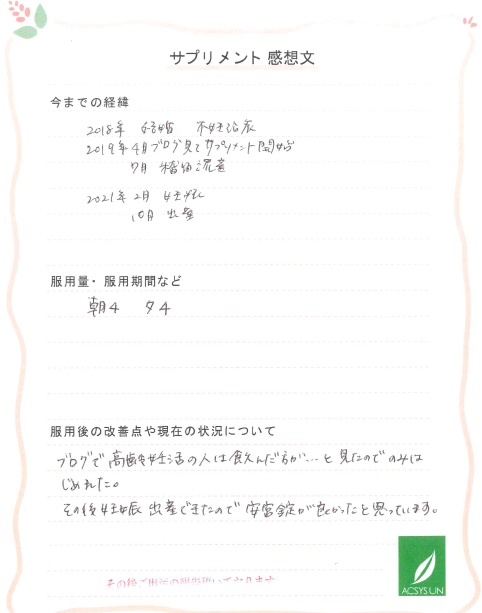 サプリメント 感想文
今までの経緯
2018年 結婚 不妊治療
2019年4月ブログ見てサプリメント開始
7月 稽留流産
2021年2月 妊娠
10月 出産
服用量・服用期間など
朝4 夕4
服用後の改善点や現在の状況について
ブログで高齢妊活の人は飲んだ方が…と見たのでのみは
じめました。
その後妊娠 出産できたので 安宮錠が良かったと思っています。
その後ご出産の報告頂いております
ACSYS LIN